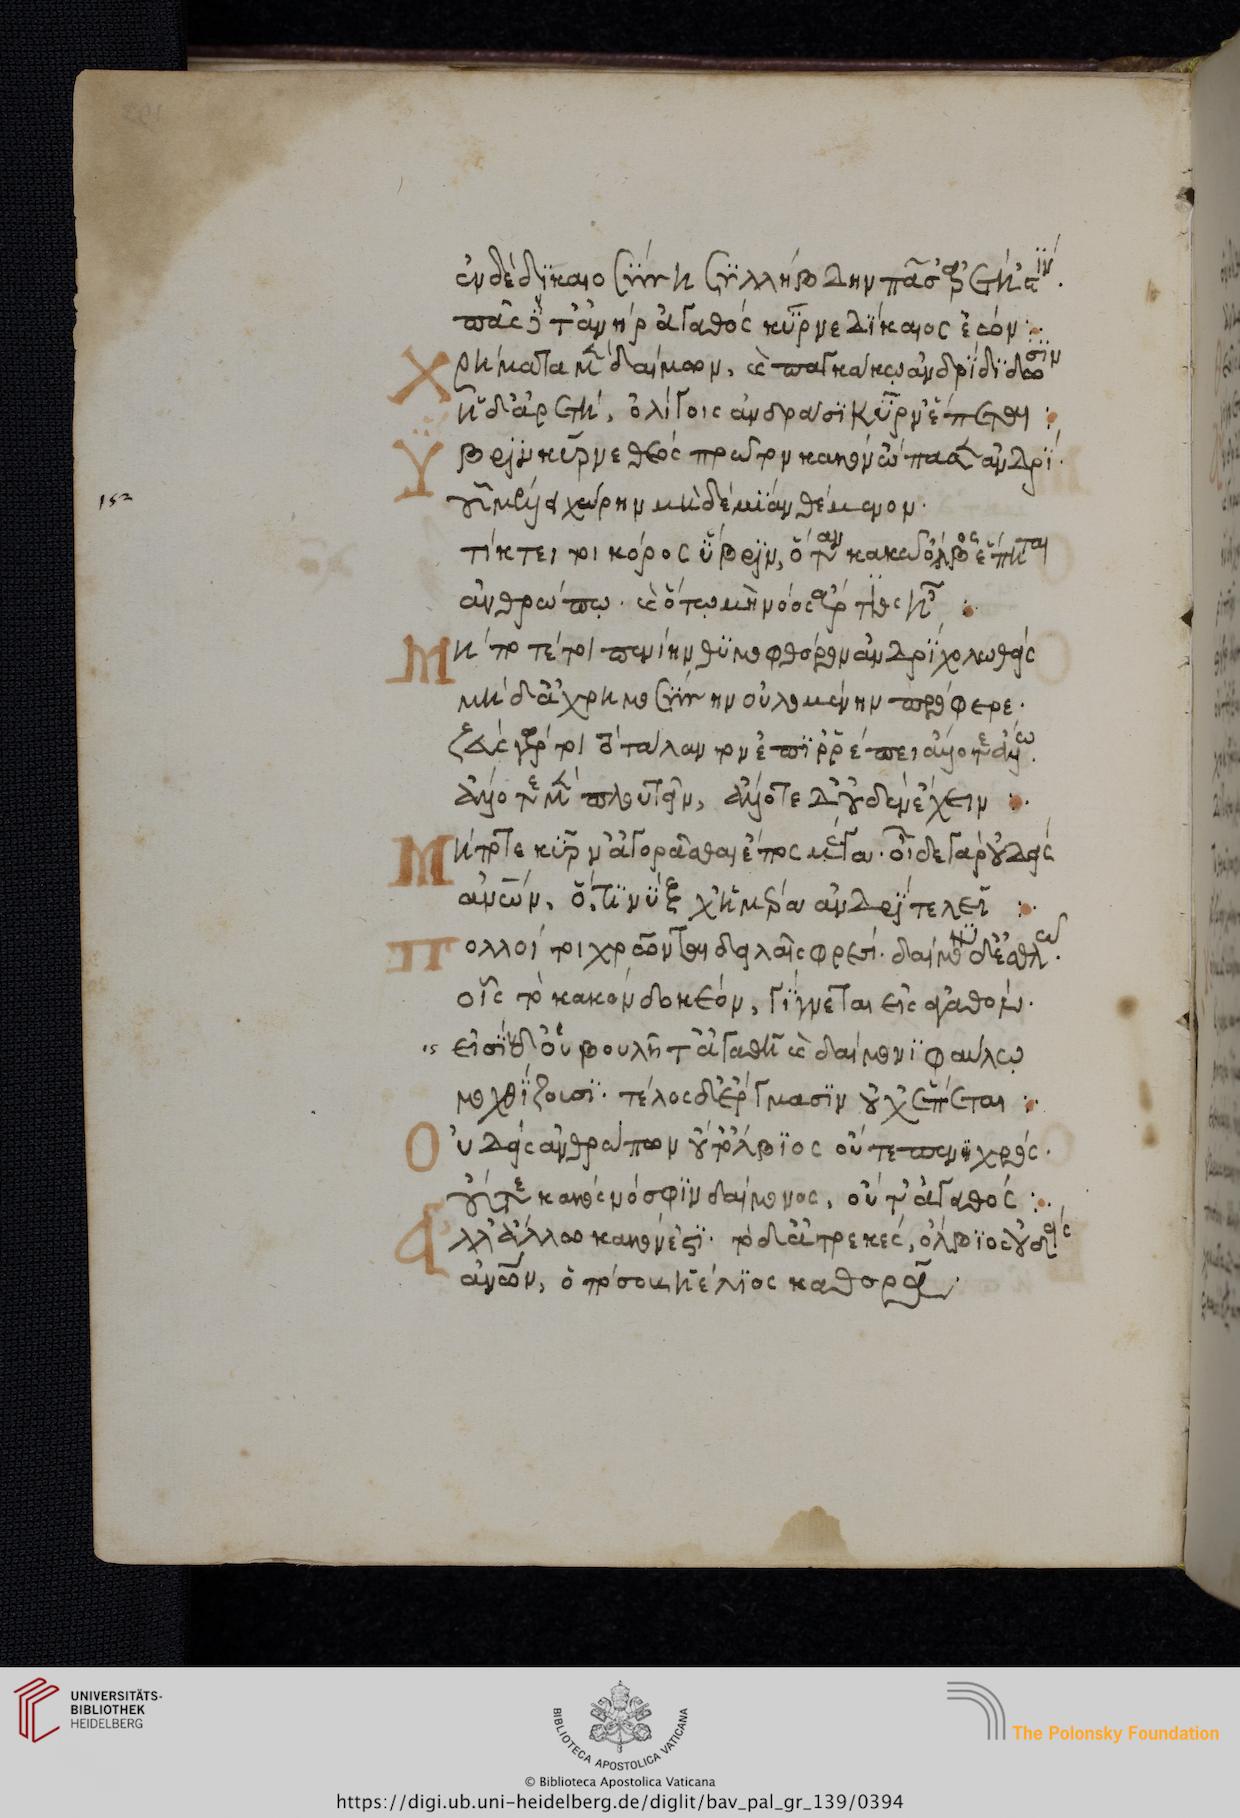 ἐν δὲ δικαιοσύνῃ συλλήβδην πᾶσ' ἀρετή ἐστιν.
πᾶς δέ τ' ἀνὴρ ἀγαθὸς κύρνε δίκαιος ἐών :.
Χρήματα μὲν δαίμων, καὶ παγκάκῳ ἀνδρὶ δίδωσιν
ἢ δ' ἀρετή, ὀλίγοις ἀνδράσι κύρν' ἕπεται :
Ὕβριν κύρνε θεὸς πρῶτον κακὸν ὤπασεν ἀνδρί.
152
χώρην μηδεμίαν θέμενον.
τίκτει τοι κόρος ὕβριν, ὅταν κακῷ ὄλβος ἕπηται
ἀνθρώπῳ. καὶ ὅτῳ μὴ νόος ἄρτιος ᾖ :.
Μήποτέ τοι πενίην θυμοφθόρον ἀνδρὶ χολωθείς
μηδ' ἀχρημοσύνην οὐλομένην πρόφερε.
ζεὺς γάρ τοι τάλαντον ἐπιρρέπει ἄλλοτε ἄλλῳ.
ἄλλοτε μὲν πλουτεῖν, ἄλλοτε δ' οὐδὲν ἔχειν :.
Μήποτε κύρν' ἀγορᾶσθαι ἔπος μέγα. οἶδε γὰρ οὐδείς
ἀνθρώπων, ὅ,τι νὺξ χἠμέρα ἀνδρὶ τελεῖ :.
Πολλοί τοι χρῶνται δειλαῖς φρεσί. δαίμονι δ' ἐσθλῷ.
οἷς τὸ κακὸν δοκέον, γίγνεται εἰς ἀγαθόν.
15 εἰσὶ δ' οἳ βουλῇ τ' ἀγαθῇ καὶ δαίμονι φαύλῳ
μοχθίζουσι. τέλος δ' ἔργμασιν οὐχ ἕπεται :.
Οὐδεὶς ἀνθρώπων οὔτ' ὄλβιος οὔτε πενιχρός.
οὔτε κακὸς νόσφιν δαίμονος, οὔτ' ἀγαθός :.
Ἄλλ' ἄλλῳ κακόν ἐστι. τὸ δ' ἀτρεκές, ὄλβιος οὐδείς
ἀνθρώπων, ὁπόσους ἠέλιος καθορᾷ.
UNIVERSITÄTS-
BIBLIOTHEK
HEIDELBERG
BIBLIOTECA APOSTOLICA VATICANA
The Polonsky Foundation
© Biblioteca Apostolica Vaticana
https://digi.ub.uni-heidelberg.de/diglit/bav_pal_gr_139/0394